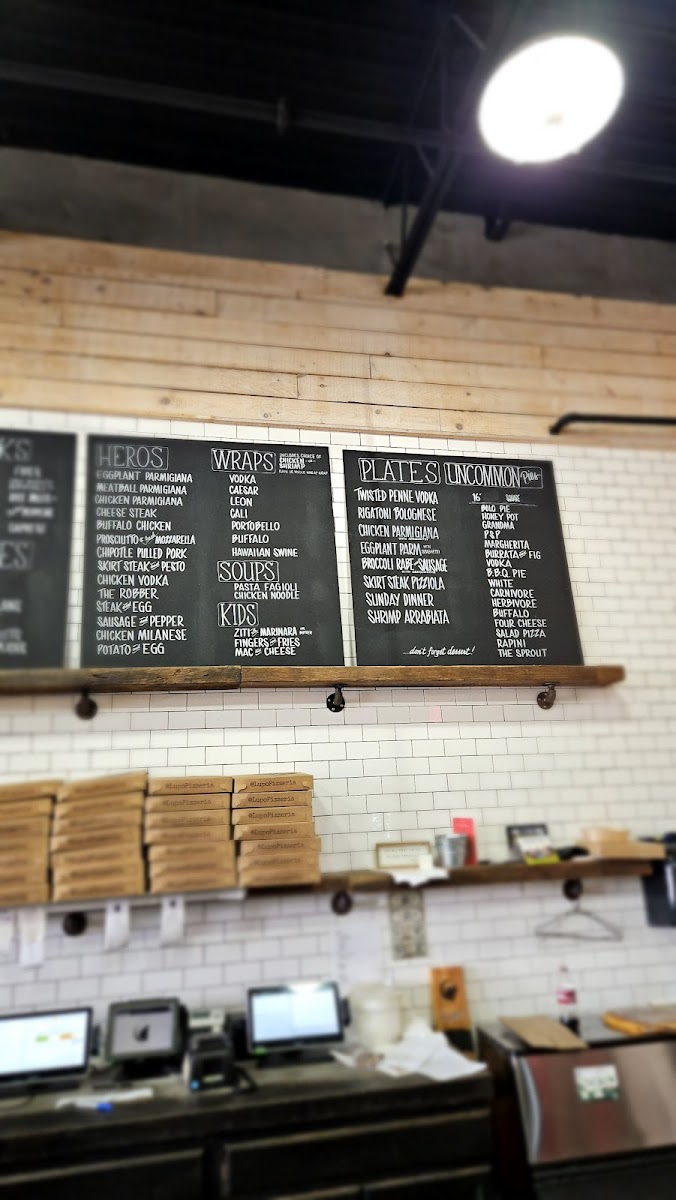 HEROS
EGGPLANT PARMIGIANA
MEATBALL PARMIGIANA
CHICKEN PARMIGIANA
CHEESE STEAK
BUFFALO CHICKEN
PROSCIUTTO & MOZZARELLA
CHIPOTLE PULLED PORK
SKIRT STEAK AND PESTO
CHICKEN VODKA
THE ROBBER
STEAK AND EGG
SAUSAGE AND PEPPER
CHICKEN MILANESE
POTATO AND EGG
WRAPS
INCLUDES CHOICE OF
CHICKEN OR
SHRIMP
VODKA
CAESAR
LEON
CALI
PORTOBELLO
BUFFALO
HAWAIIAN SWINE
SOUPS
PASTA FAGIOLI
CHICKEN NOODLE
KIDS
ZITI MARINARA OR BUTTER
FINGERS AND FRIES
MAC AND CHEESE
PLATES
TWISTED PENNE VODKA
RIGATONI BOLOGNESE
CHICKEN PARMIGIANA
EGGPLANT PARM WITH SPAGHETTI
BROCCOLI RABE AND SAUSAGE
SKIRT STEAK PIZZIOLA
SUNDAY DINNER
SHRIMP ARRABIATA
...don't forget dessert!
UNCOMMON Pies
16" SQUARE
BOLO PIE
HONEY POT
GRANDMA
P&P
MARGHERITA
BURRATA AND FIG
VODKA
B.B.Q. PIE
WHITE
CARNIVORE
HERBIVORE
BUFFALO
FOUR CHEESE
SALAD PIZZA
RAPINI
THE SPROUT
#LupoPizzeria
#LupoPizzeria
#LupoPizzeria
#LupoPizzeria
#LupoPizzeria
#LupoPizzeria